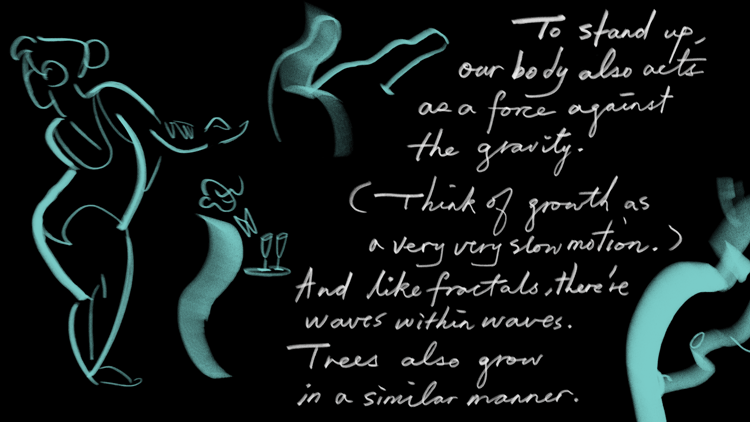 To stand up,
our body also acts
as a force against
the gravity.
(Think of growth as
a very very slow motion.)
And like fractals, there're
waves within waves.
Trees also grow
in a similar manner.